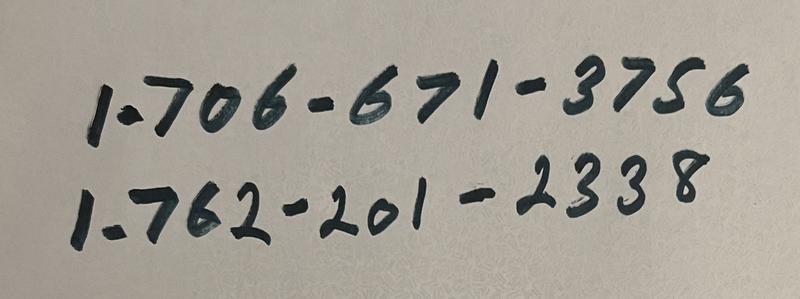 1-706-671-3756
1-762-201-2338